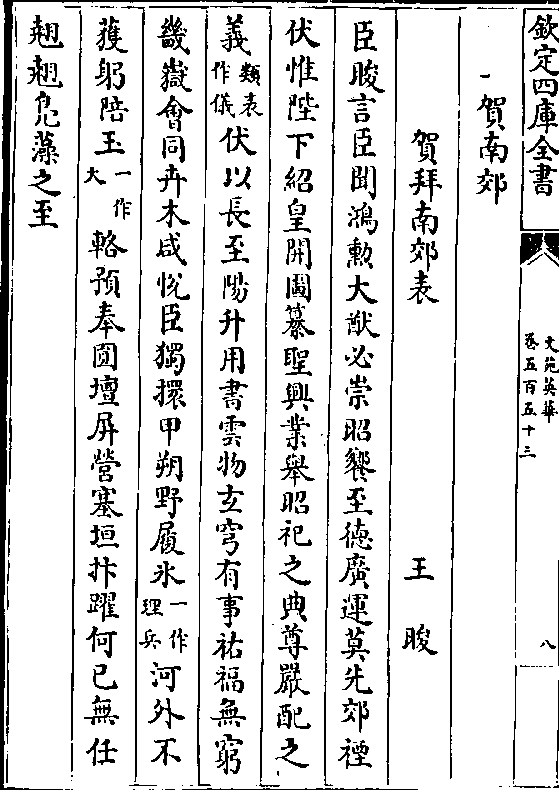 欽定四庫全書
文苑英華
卷五百五十三
八
賀南郊
賀拜南郊表 王晙
臣晙言臣聞鴻勲大猷必崇昭饗至德廣運莫先郊禋
伏惟陛下紹皇開圖纂聖興業舉昭祀之典尊嚴配之
義類表作儀伏以長至陽升用書雲物玄穹有事祐福無窮
畿嶽會同卉木咸悅臣獨擐甲朔野履氷一作理兵河外不
獲躬陪玉一作大輅預奉圓壇屏營塞垣抃躍何已無任
翹翹鳬藻之至